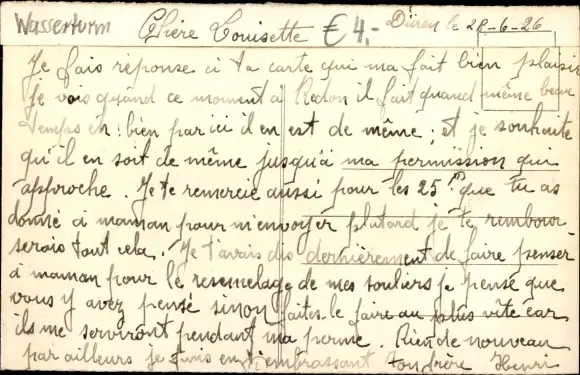 Wasserturm Chère Louisette € 4,- Düren le 28-6-26
Je fais réponse ci ta carte qui ma fait bien plaisir
Je vois quand ce moment a Redon il fait quand même beau
temps eh! bien par ici il en est de même; et je souhaite
qu'il en soit de même jusqu'a ma permission qui
approche. Je te remercie aussi pour les 25 que tu as
donné a maman pour m'envoyer plutard je te rembour
serais tout cela. Je t'avais dis dernièrement de faire penser
a maman pour le resemelage de mes souliers je pense que
vous y avez pensé sinon faites le faire au plus vite car
ils me serviront pendant ma perme. Rien de nouveau
par ailleurs je finis en t'embrassant ton frère Henri